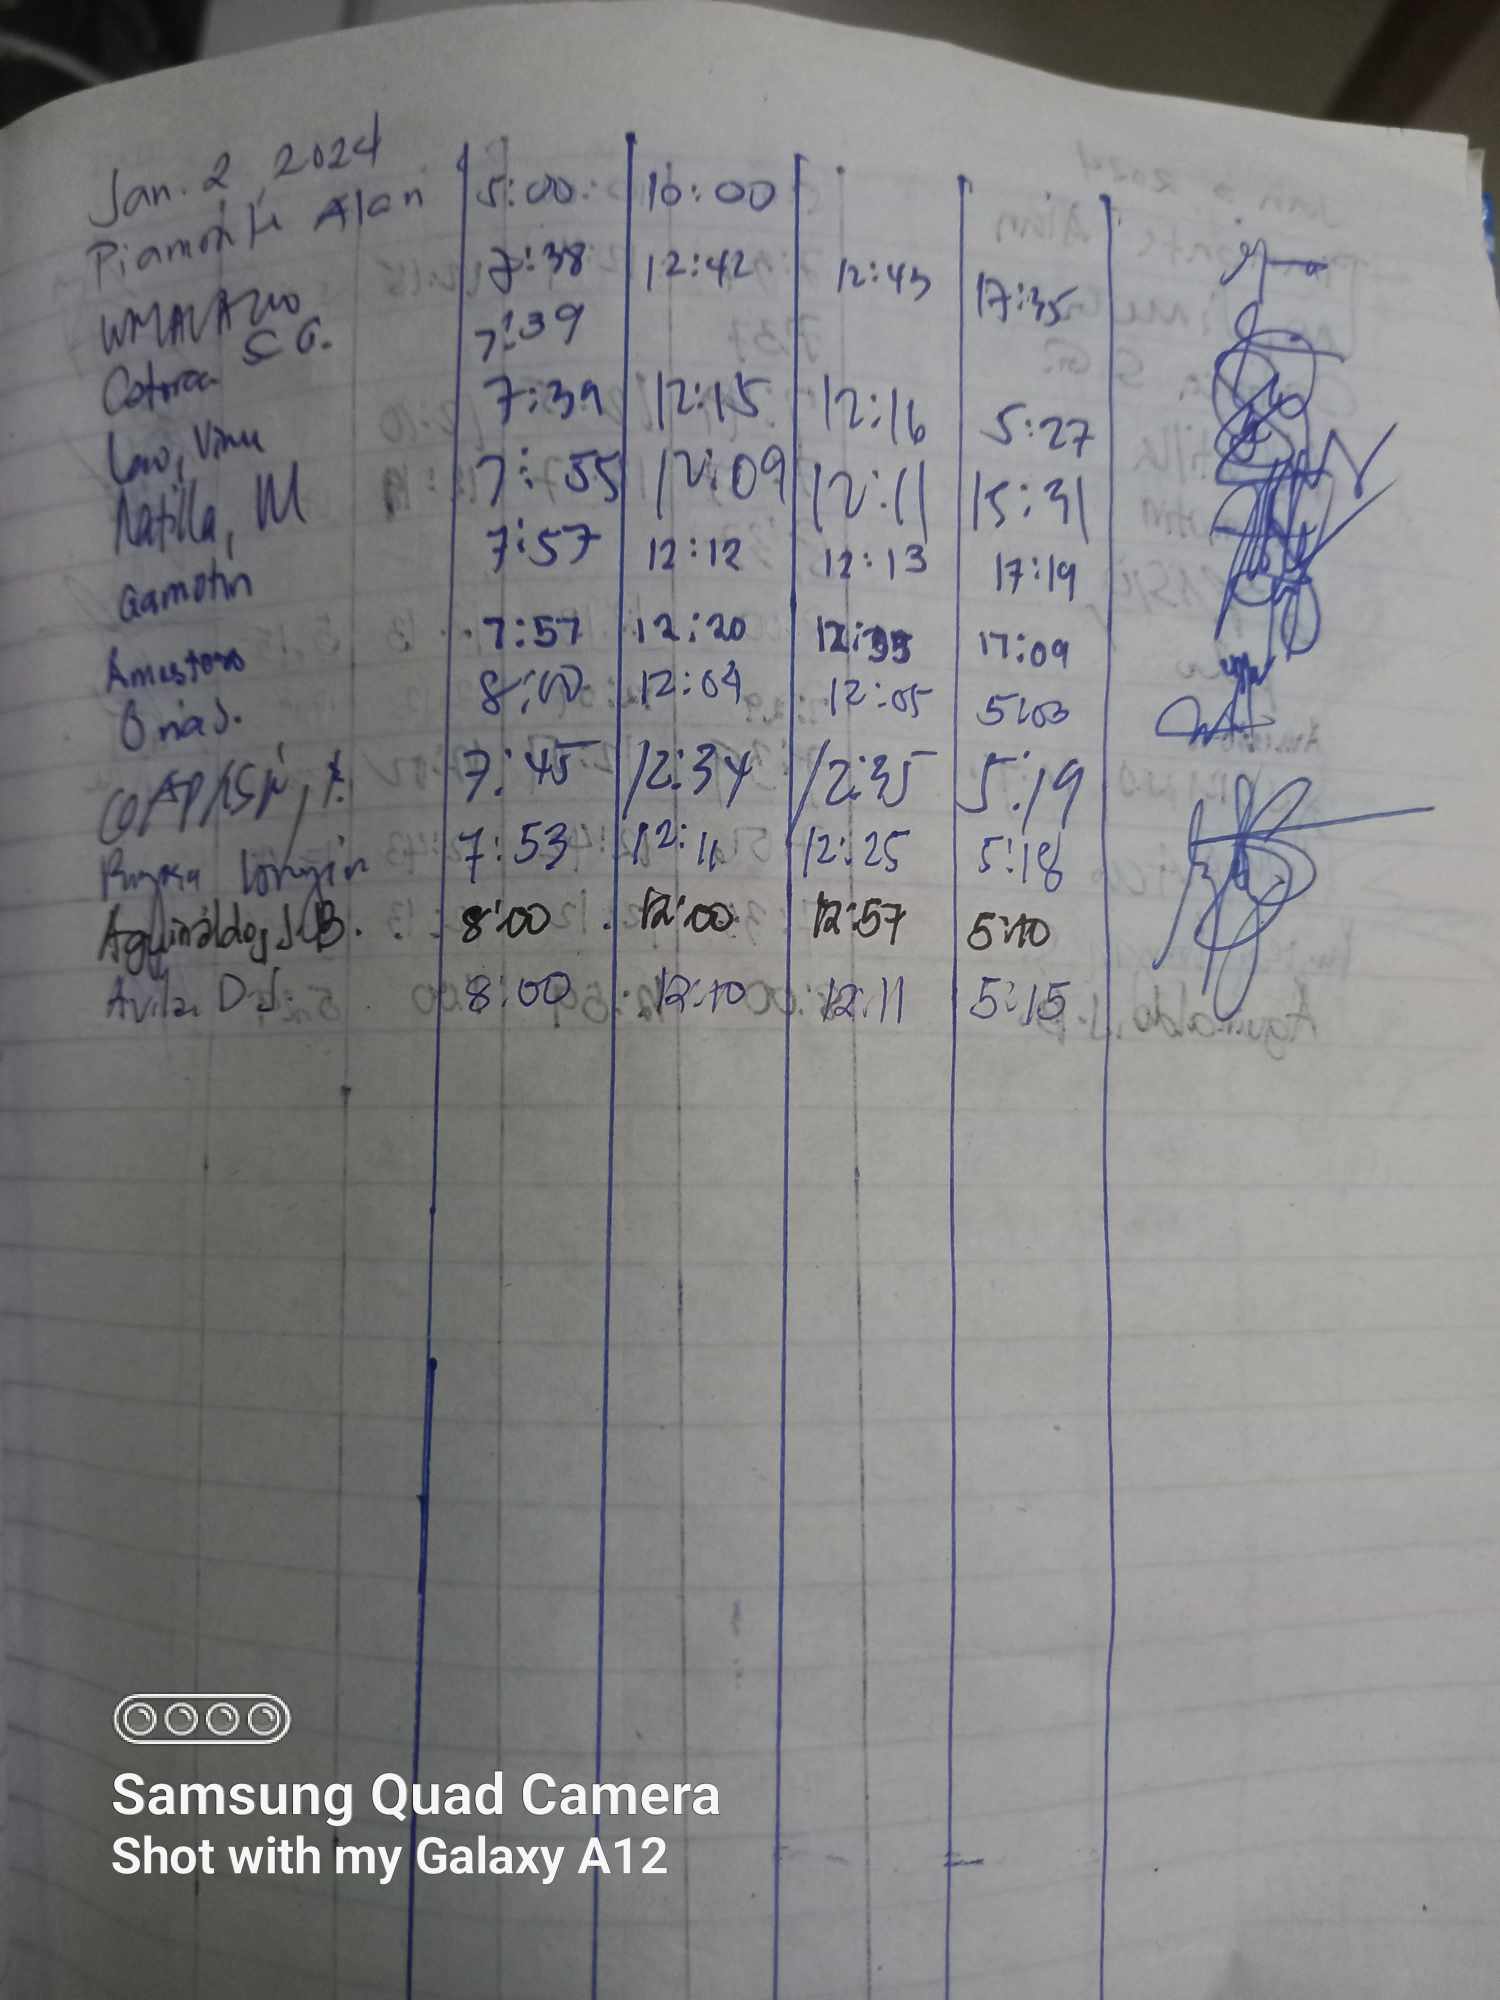 Jan. 2, 2024
Piamonte Alan 5:00 10:00
7:38 12:42 12:43 17:35
Cotoraa S G. 7:39
Lao, Vinu 7:39 12:15 12:16 5:27
Natilla, M 7:55 12:09 12:11 15:31
Gamotin 7:57 12:12 12:13 17:19
Amustoso 7:57 12:20 17:09
Onias. 8:00 12:04 12:05 5:03
7:45 12:34 12:35 5:19
7:53 12:11 12:25 5:18
Aguinaldo, J.B. 8:00 12:00 12:57 5:10
Avila D.J. 8:00 12:10 12:11 5:15
Samsung Quad Camera
Shot with my Galaxy A12